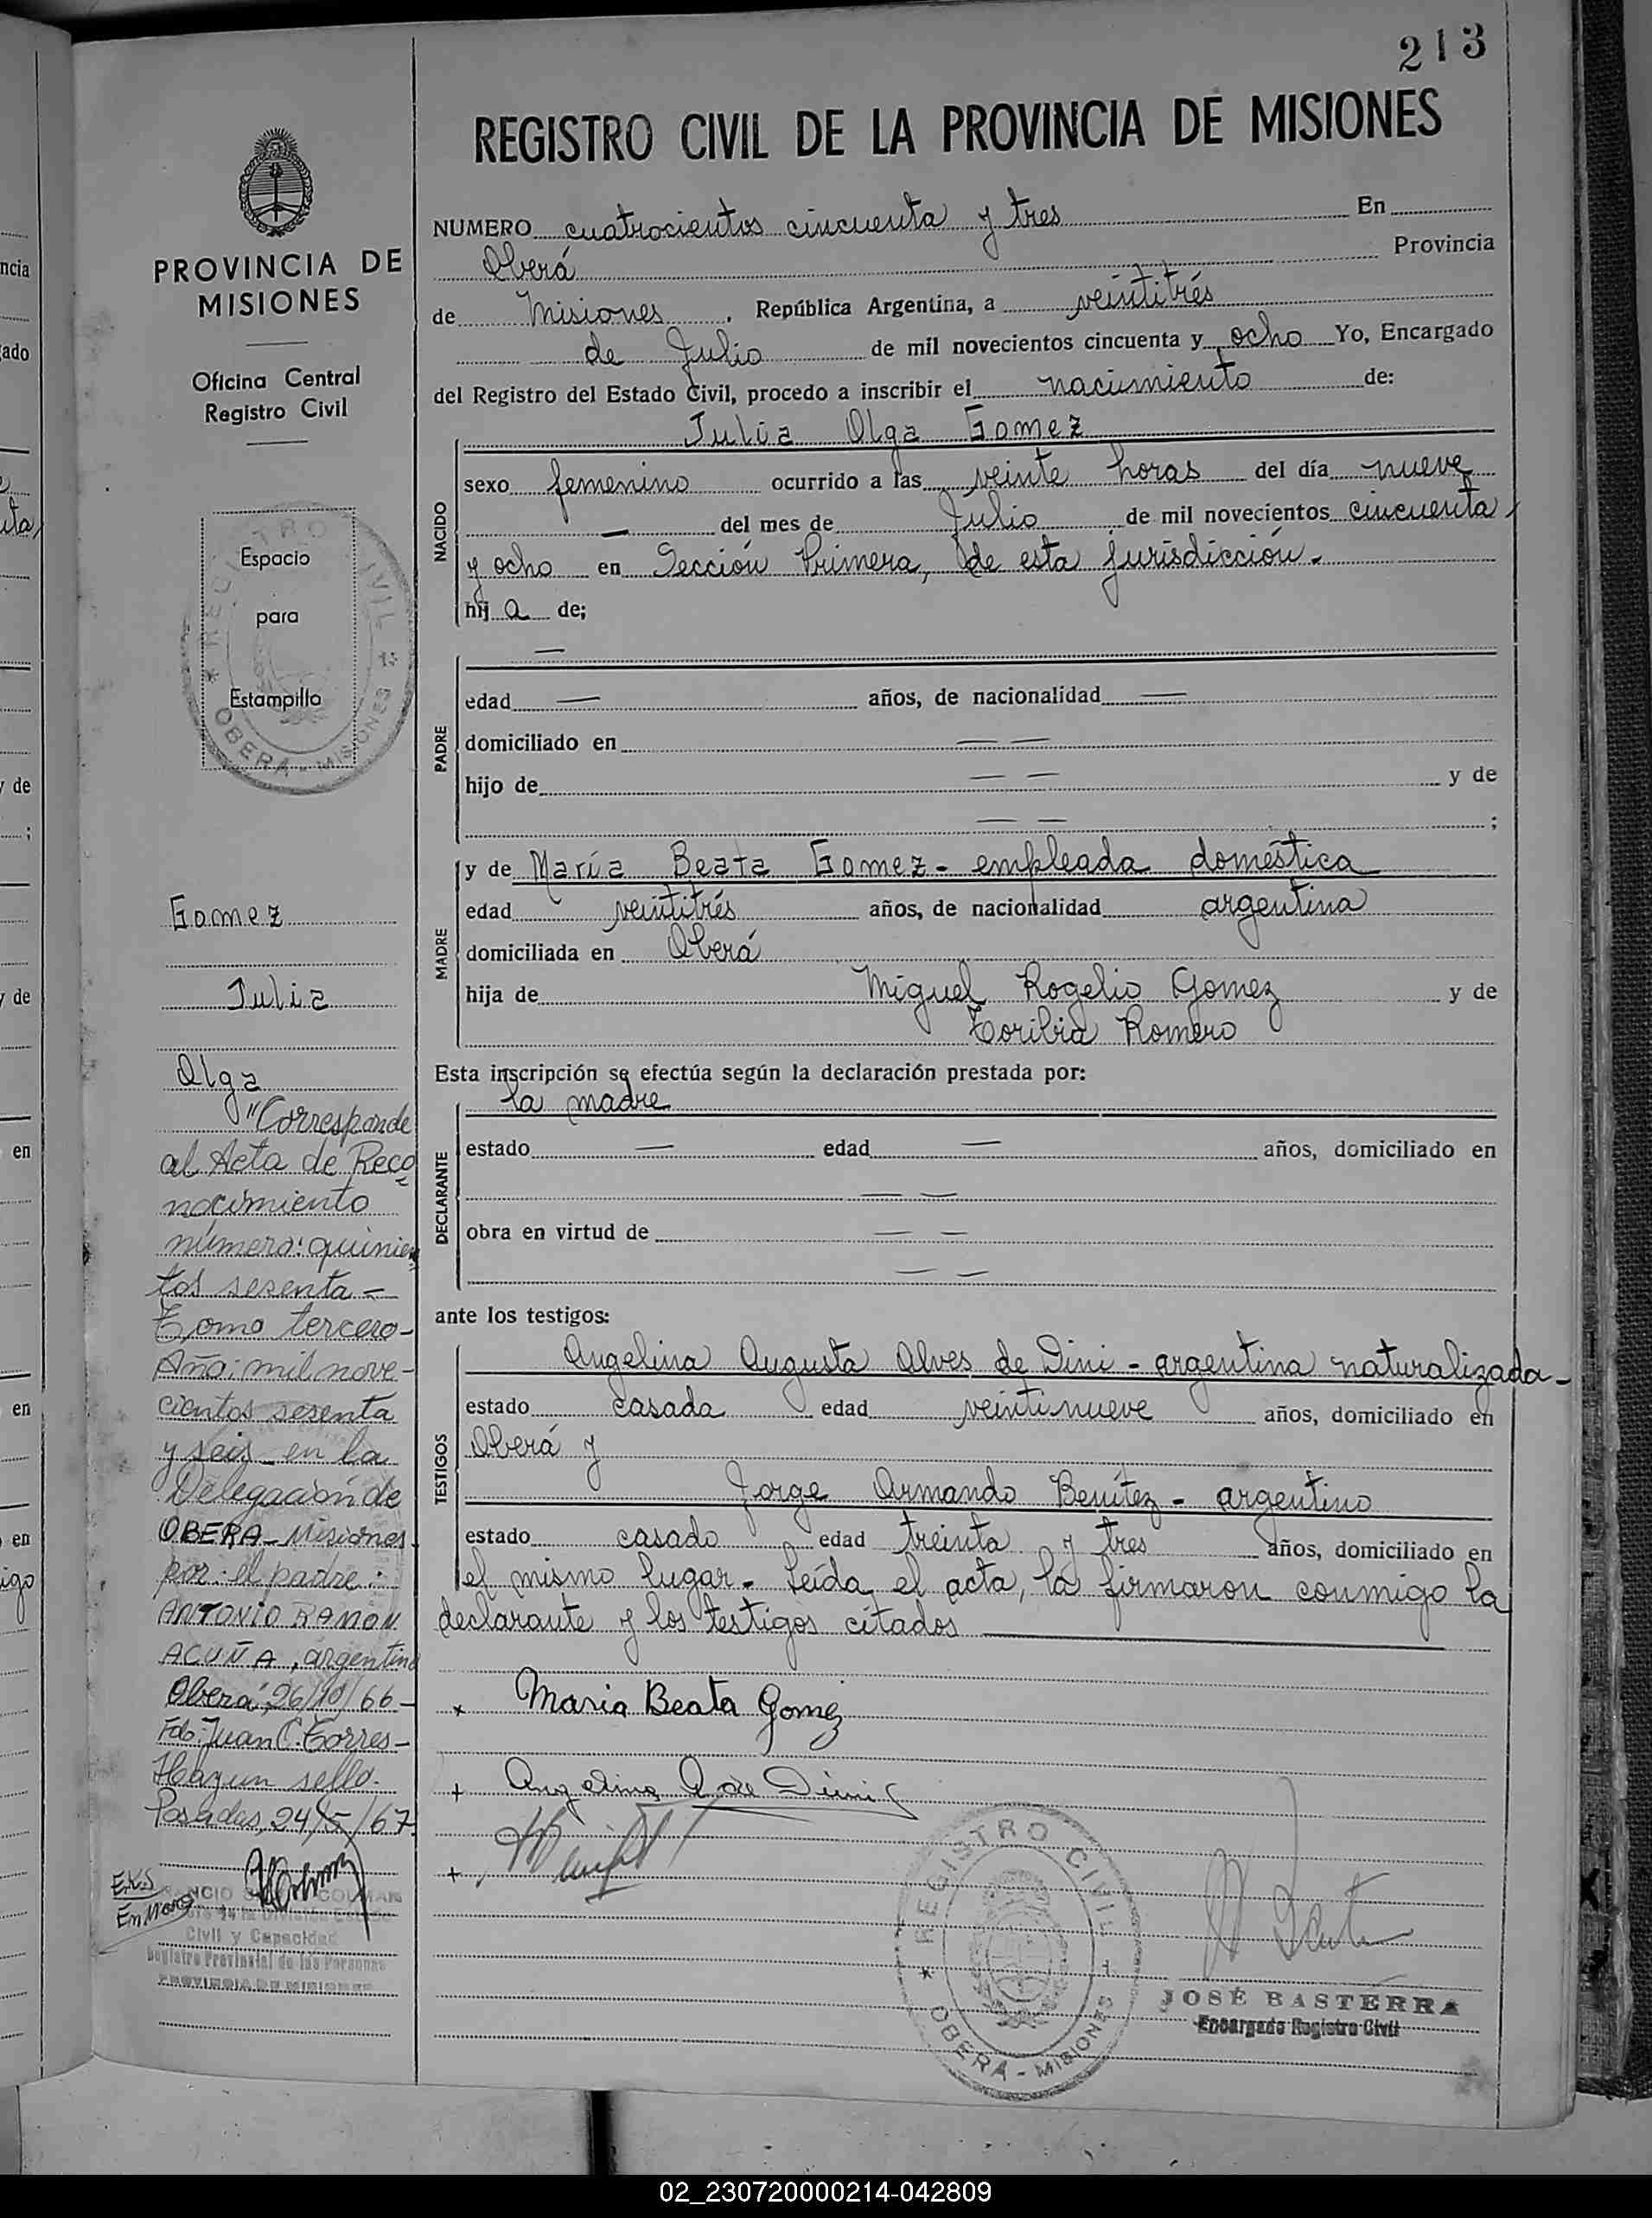 213
REGISTRO CIVIL DE LA PROVINCIA DE MISIONES
PROVINCIA DE
MISIONES
Oficina Central
Registro Civil
Espacio
para
Estampilla
REGISTRO CIVIL
OBERA - MISIONES
Gomez
Julia
Olga
"Corresponde
al Acta de Reco
nocimiento
número: quinien
tos sesenta -
Tomo tercero -
Año: mil nove-
cientos sesenta
y seis - en la
Delegación de
OBERA - Misiones
por: el padre:
ANTONIO RAMON
ACUÑA, argentino
Oberá, 26/10/66 -
Fdo: Juan C. Torres -
Hay un sello.
Posadas, 24/5/67.
Civil y Capacidad
Registro Provincial de las Personas
PROVINCIA DE MISIONES
NUMERO cuatrocientos cincuenta y tres En
Oberá Provincia
de Misiones, República Argentina, a veintitrés
de Julio de mil novecientos cincuenta y ocho Yo, Encargado
del Registro del Estado Civil, procedo a inscribir el nacimiento de:
NACIDO
Julia Olga Gomez
sexo femenino ocurrido a las veinte horas del día nueve
— del mes de Julio de mil novecientos cincuenta
y ocho en Sección Primera, de esta jurisdicción.-
hija de;
PADRE
—
edad — años, de nacionalidad —
domiciliado en — —
hijo de — — y de
— — ;
MADRE
y de María Beata Gomez - empleada doméstica
edad veintitrés años, de nacionalidad argentina
domiciliada en Oberá
hija de Miguel Rogelio Gomez y de
Toribia Romero
Esta inscripción se efectúa según la declaración prestada por:
DECLARANTE
la madre
estado — edad — años, domiciliado en
— —
obra en virtud de — —
— —
ante los testigos:
TESTIGOS
Angelina Augusta Alves de Dini - argentina naturalizada -
estado casada edad veintinueve años, domiciliado en
Oberá y
Jorge Armando Benítez - argentino
estado casado edad treinta y tres años, domiciliado en
el mismo lugar - Leída el acta, la firmaron conmigo la
declarante y los testigos citados
x Maria Beata Gomez
+ Angelina A de Dini
+
REGISTRO CIVIL
OBERA - MISIONES
JOSÉ BASTERRA
Encargado Registro Civil
ncia
en
y de
02_230720000214-042809